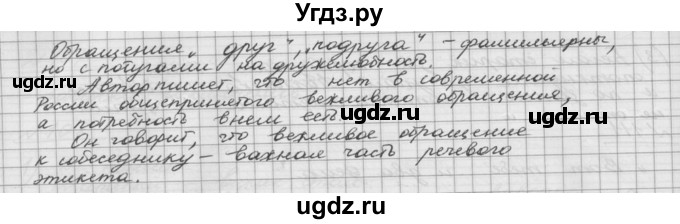 Угдз.ру
Обращения „друг“, „подруга“ – фамильярны,
но с потугами на дружелюбность.
Автор пишет, что нет в современной
России общепринятого вежливого обращения,
а потребность в нем есть.
Он говорит, что вежливое обращение
к собеседнику – важная часть речевого
этикета.
©Угдз.ру
©Угдз.ру
©Угдз.ру
©Угдз.ру